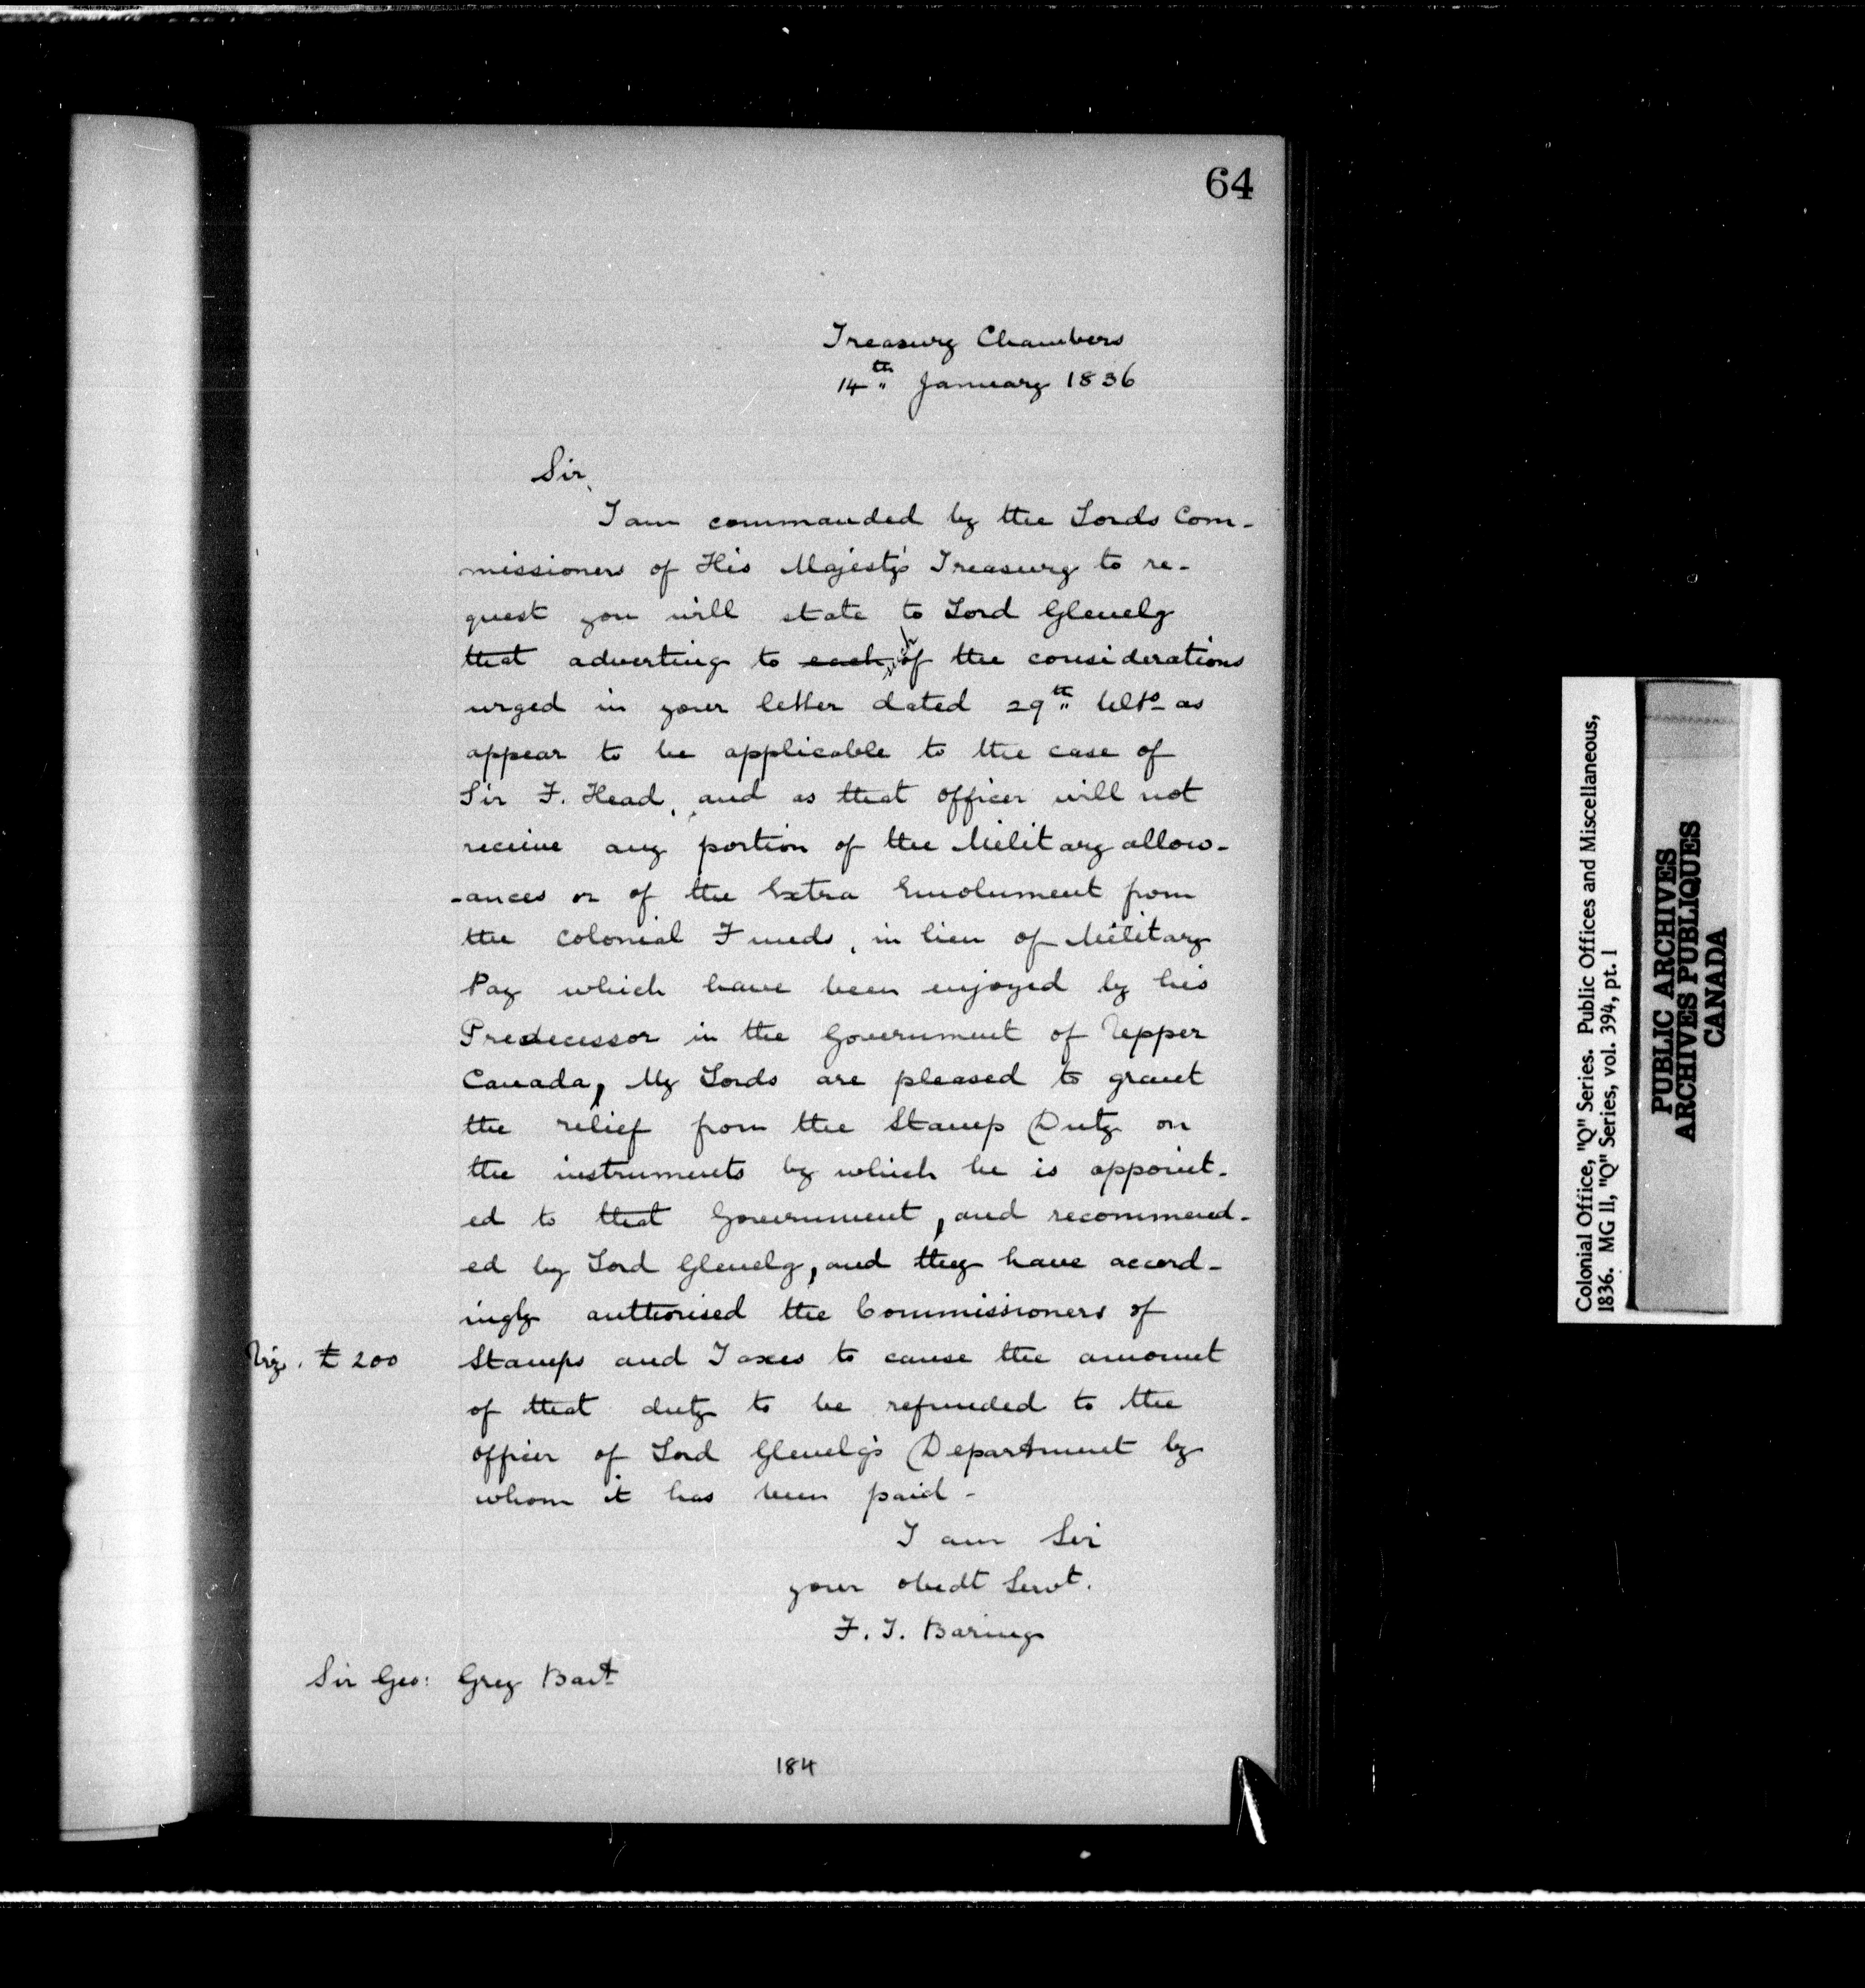 64
Treasury Chambers
14th January 1836
Sir,
I am commanded by the Lords Com-
missioners of His Majesty's Treasury to re-
quest you will state to Lord Glenelg
that adverting to each of the considerations
urged in your letter dated 29th Ulto as
appear to be applicable to the case of
Sir F. Head, and as that officer will not
receive any portion of the Military allow-
-ances or of the Extra Emolument from
the Colonial Funds, in lieu of Military
Pay which have been enjoyed by his
Predecessor in the Government of Upper
Canada, My Lords are pleased to grant
the relief from the Stamp Duty on
the instruments by which he is appoint-
ed to that Government, and recommend-
ed by Lord Glenelg, and they have accord-
ingly authorised the Commissioners of
Viz. £200 Stamps and Taxes to cause the amount
of that duty to be refunded to the
officer of Lord Glenelg's Department by
whom it has been paid -
I am Sir
your obedt Servt.
F. T. Baring
Sir Geo: Grey Bart
184
Colonial Office, "Q" Series. Public Offices and Miscellaneous,
1836. MG 11, "Q" Series, vol. 394, pt. 1
PUBLIC ARCHIVES
ARCHIVES PUBLIQUES
CANADA